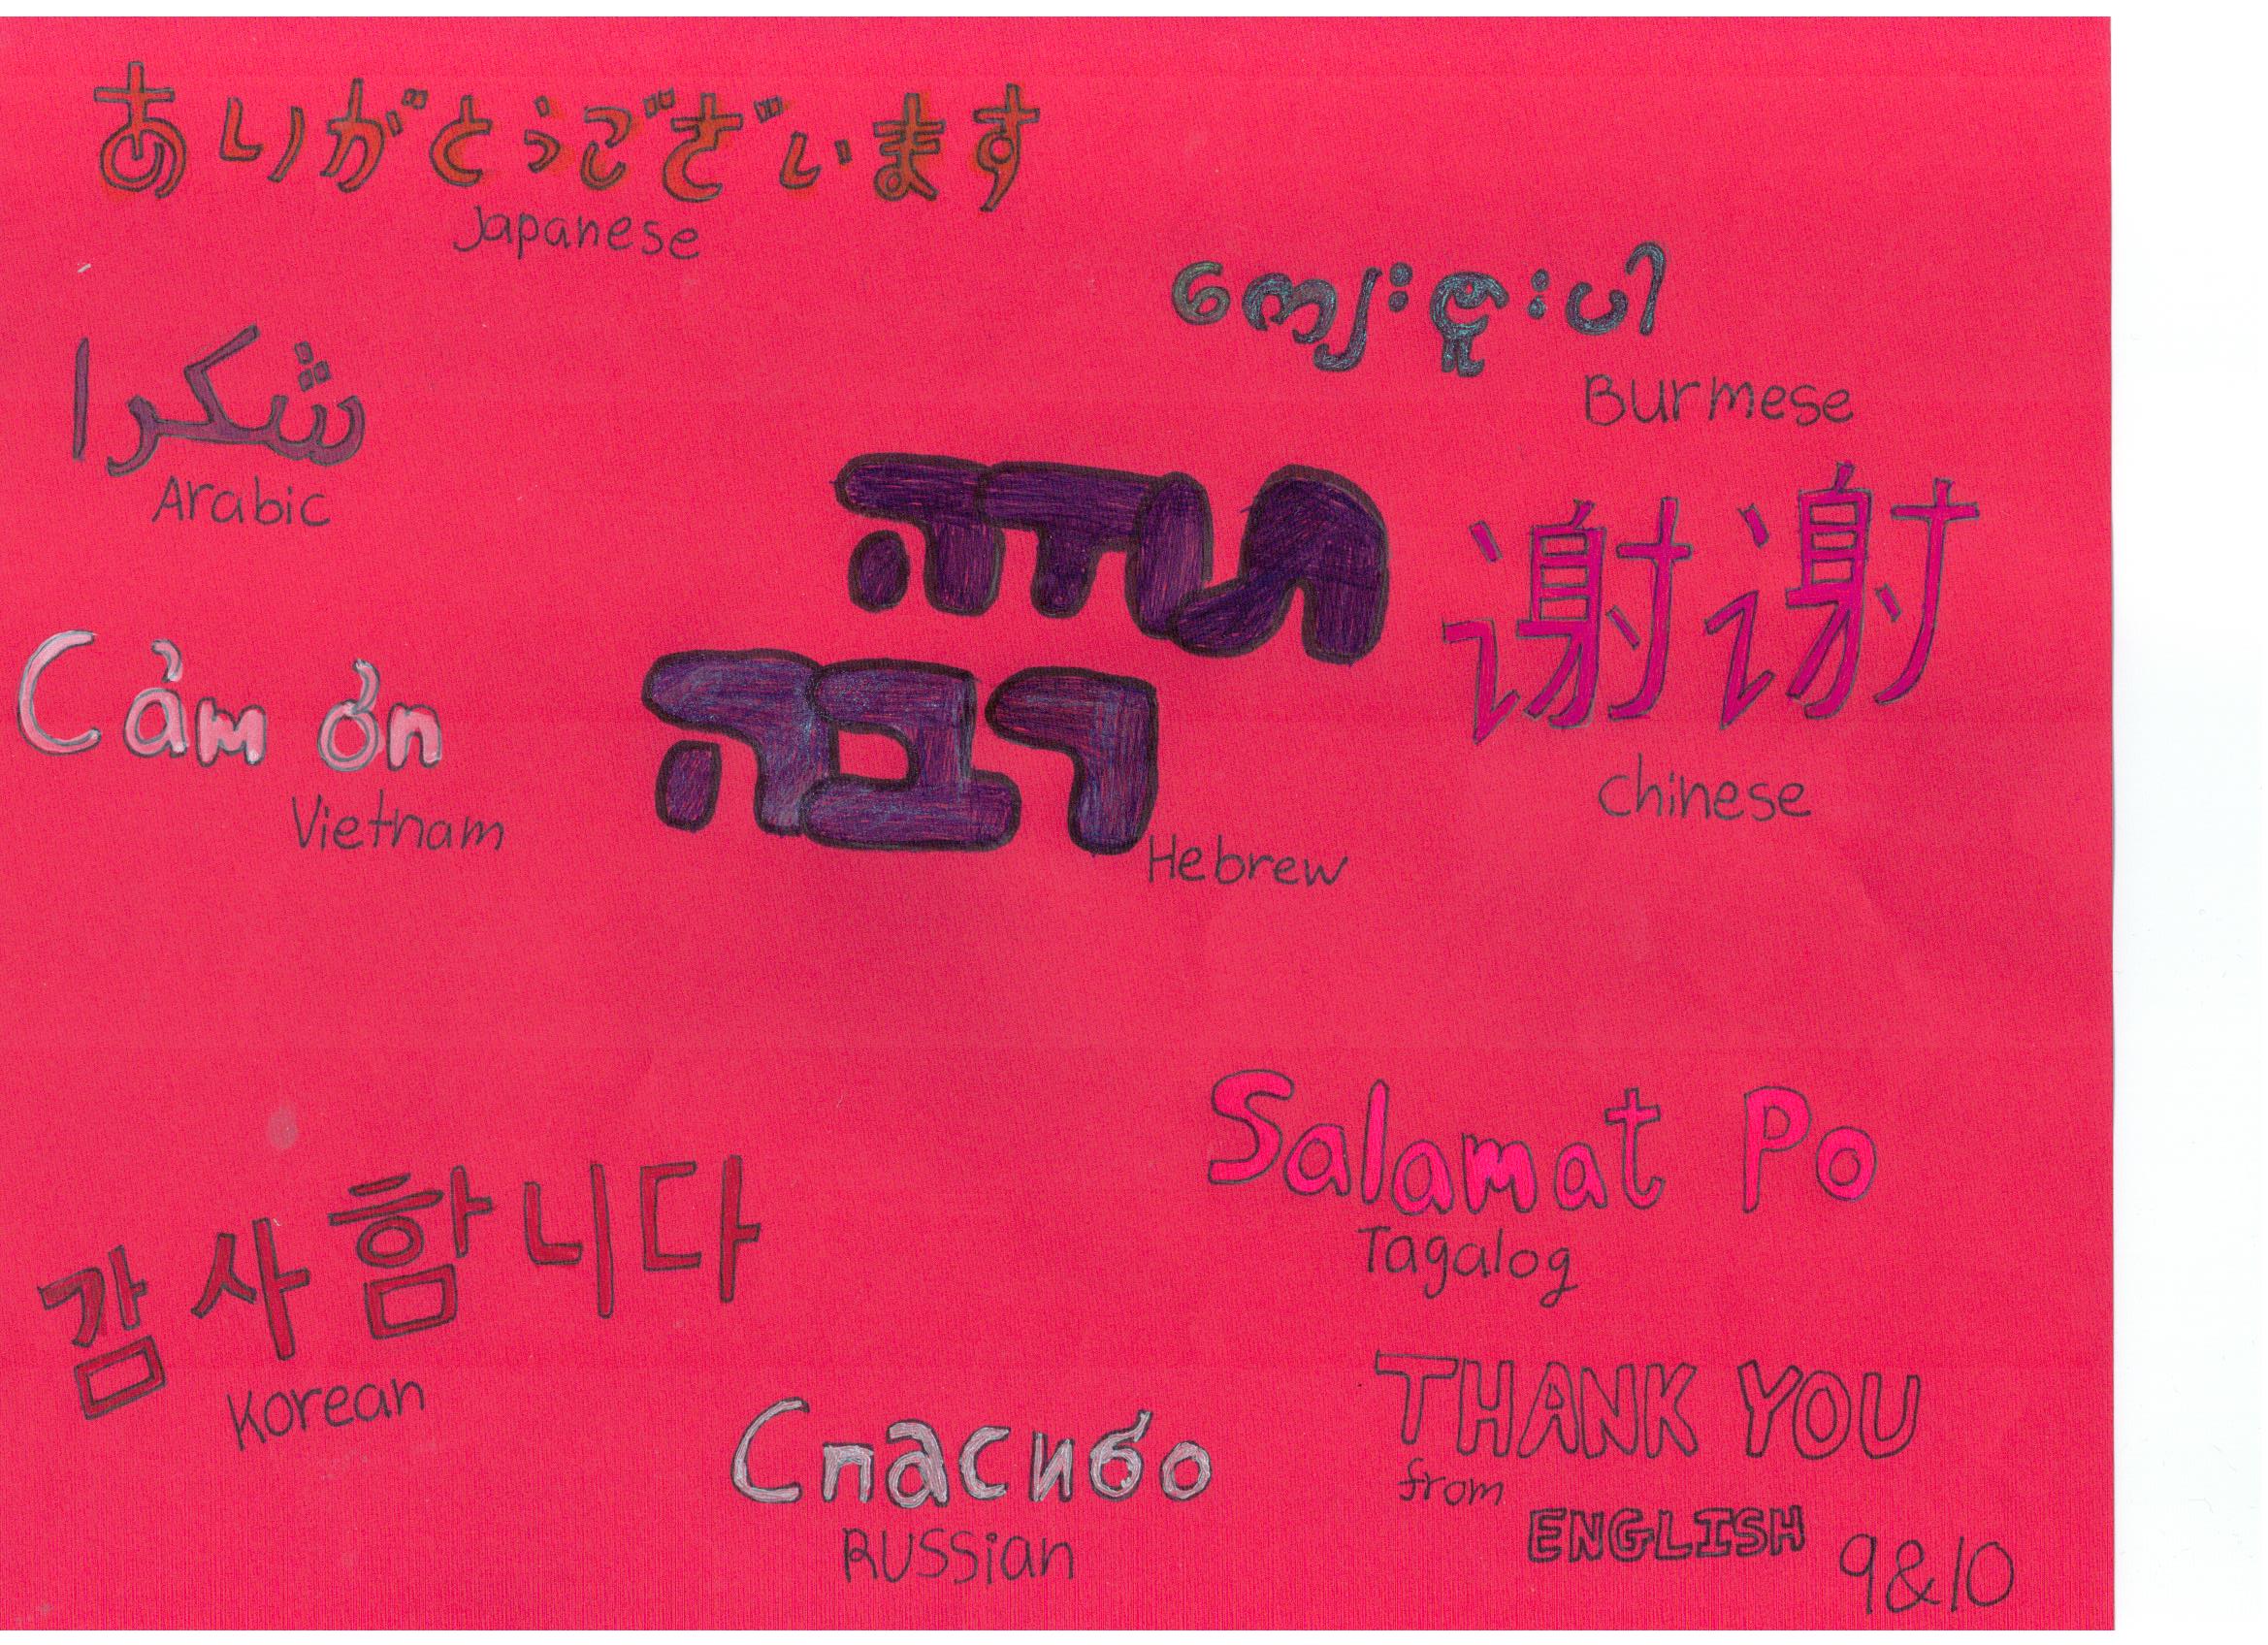 ありがとうございます
Japanese
ကျေးဇူးပါ
Burmese
شكرا
Arabic
תודה
רבה
Hebrew
谢谢
Chinese
Cảm ơn
Vietnam
Salamat Po
Tagalog
감사함니다
Korean
THANK YOU
from
ENGLISH 9&10
Спасибо
RUSSian